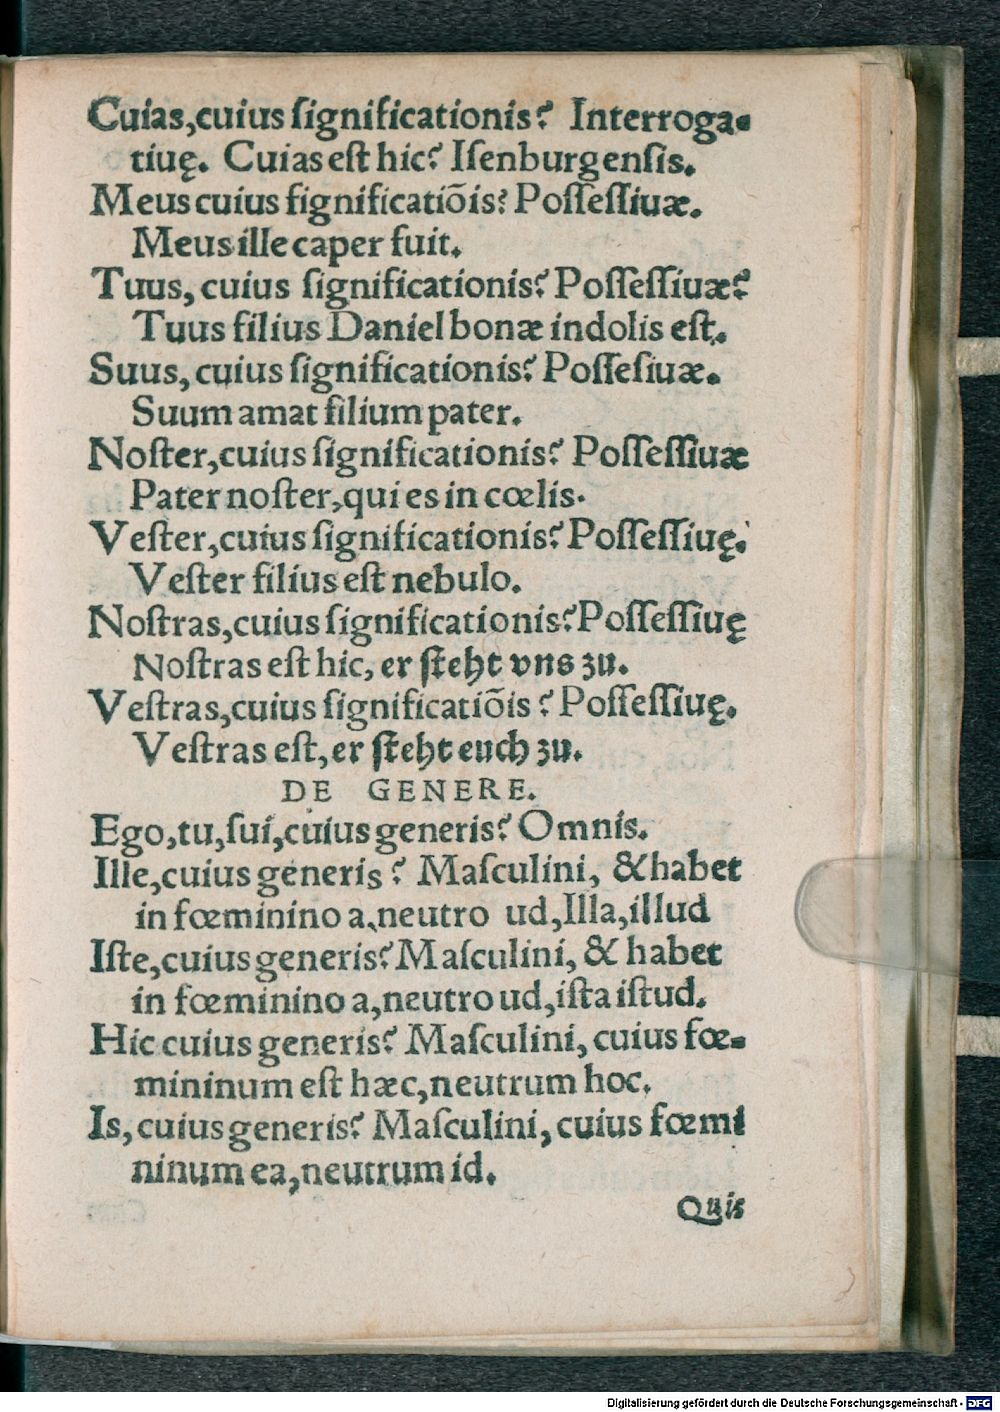 Cuias,cuius ſignificationis? Interroga-
tiuę. Cuias eſt hic? Iſenburgenſis.
Meus cuius ſignificatiōis? Poſſeſſiuæ.
Meus ille caper fuit.
Tuus, cuius ſignificationis? Poſſeſſiuæ?
Tuus filius Daniel bonæ indolis eſt.
Suus, cuius ſignificationis? Poſſeſiuæ.
Suum amat filium pater.
Noſter,cuius ſignificationis? Poſſeſſiuæ
Pater noſter,qui es in cœlis.
Veſter,cuius ſignificationis? Poſſeſſiuę.
Veſter filius eſt nebulo.
Noſtras,cuius ſignificationis?Poſſeſſiuę
Noſtras eſt hic, er ſteht vns zu.
Veſtras,cuius ſignificatiōis? Poſſeſſiuę.
Veſtras eſt, er ſteht euch zu.
DE GENERE.
Ego,tu,ſui,cuius generis? Omnis.
Ille,cuius generis? Maſculini, & habet
in fœminino a,neutro ud,Illa,illud
Iſte,cuius generis? Maſculini, & habet
in fœminino a,neutro ud,iſta iſtud.
Hic cuius generis? Maſculini, cuius fœ-
mininum eſt hæc,neutrum hoc.
Is, cuius generis? Maſculini, cuius fœmi
ninum ea,neutrum id.
Quis
Digitalisierung gefördert durch die Deutsche Forschungsgemeinschaft - DFG